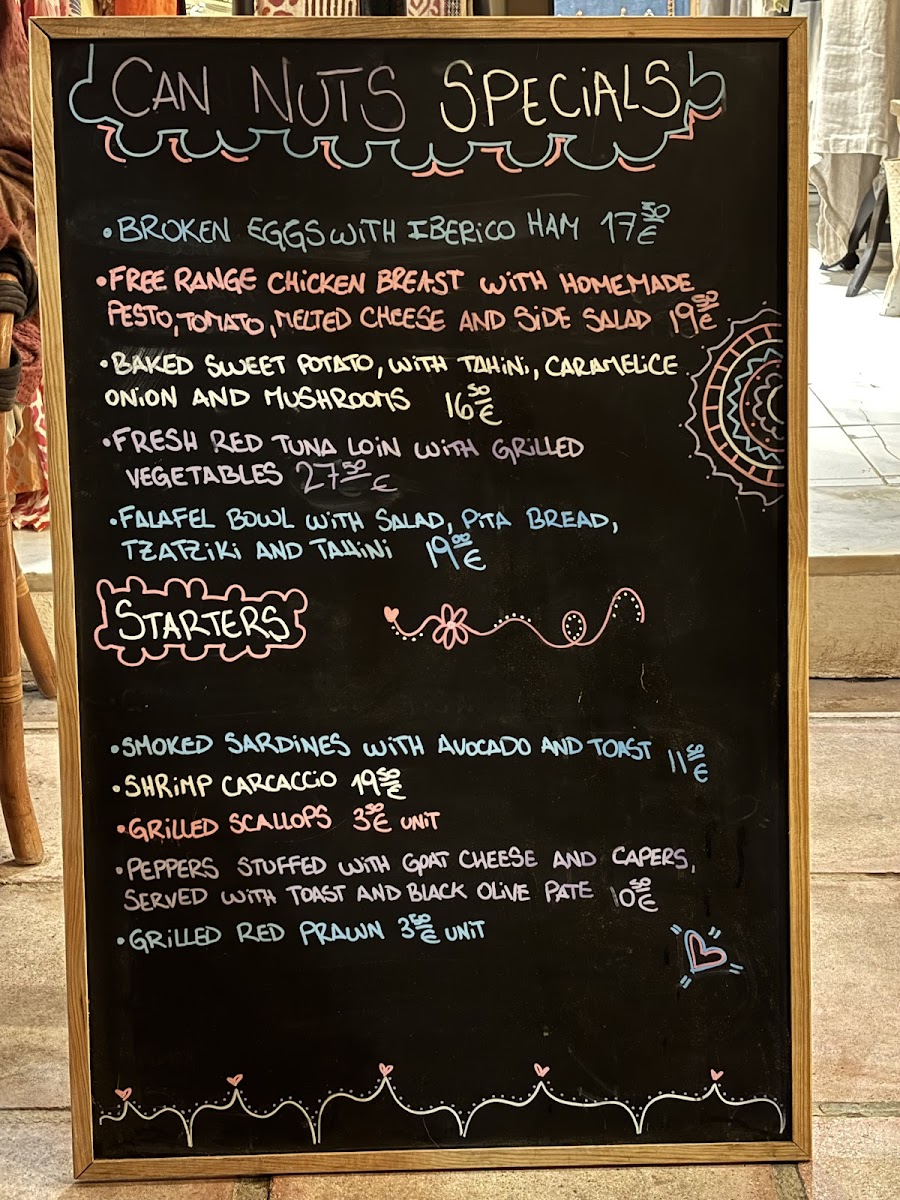 CAN NUTS SPECiALS
• BROKEN EGGS WiTH IBERiCO HAM 17 50 €
• FREE RANGE CHiCKEN BREAST WiTH HOMEMADE
PESTO, TOMATO, MELTED CHEESE AND SiDE SALAD 19 50 €
• BAKED SWEET POTATO, WiTH TAHiNi, CARAMELiCE
ONiON AND MUSHROOMS 16 50 €
• FRESH RED TUNA LOiN WiTH GRiLLED
VEGETABLES 27 50 €
• FALAFEL BOWL WiTH SALAD, PiTA BREAD,
TZATZiKi AND TAHiNi 19 00 €
STARTERS
• SMOKED SARDiNES WiTH AVOCADO AND TOAST 11 50 €
• SHRiMP CARCACCiO 19 50 €
• GRiLLED SCALLOPS 3 50 € UNiT
• PEPPERS STUFFED WiTH GOAT CHEESE AND CAPERS,
SERVED WiTH TOAST AND BLACK OLiVE PATE 10 50 €
• GRiLLED RED PRAWN 3 50 € UNiT